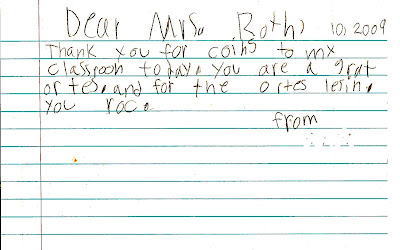 Dear Mrs. Roth, 10, 2009
Thank you for coihs to my
classpoon today. you are a grat
ortes. and for the ortes lesih.
you roc.
from